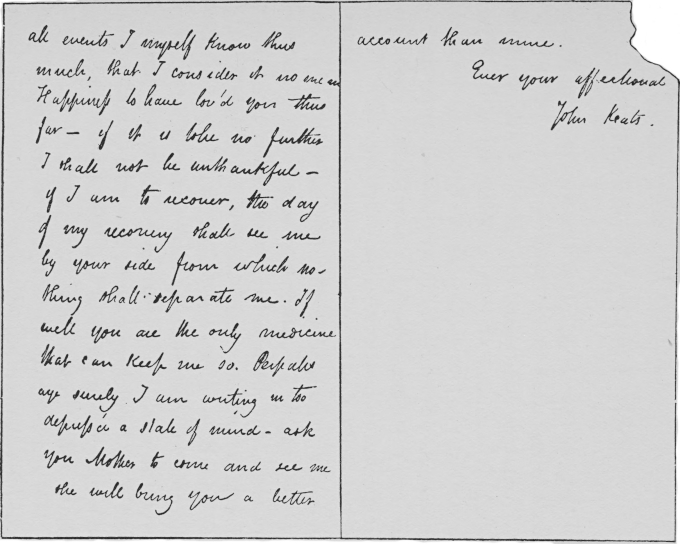 all events I myself know thus
much, that I consider it no mean
Happiness to have lov'd you thus
far — if it is to be no further
I shall not be unthankful —
if I am to recover, the day
of my recovery shall see me
by your side from which no-
thing shall separate me. If
well you are the only medicine
that can keep me so. Perhaps
aye surely I am writing in too
depress'd a state of mind - ask
your Mother to come and see me
she will bring you a better
account than mine.
Ever your affectionate
John Keats.